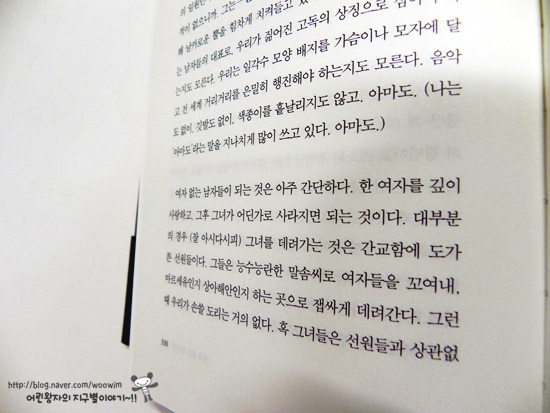 의 일원인
적이 없으니까. 그는
해 날카로운 뿔을 힘차게 치켜들고
는 남자들의 대표로, 우리가 짊어진 고독의 상징으로 삼아
는지도 모른다. 우리는 일각수 모양 배지를 가슴이나 모자에 달
고 전 세계 거리거리를 은밀히 행진해야 하는지도 모른다. 음악
도 없이, 깃발도 없이, 색종이를 흩날리지도 않고. 아마도. (나는
'아마도'라는 말을 지나치게 많이 쓰고 있다. 아마도.)
여자 없는 남자들이 되는 것은 아주 간단하다. 한 여자를 깊이
사랑하고, 그후 그녀가 어딘가로 사라지면 되는 것이다. 대부분
의 경우 (잘 아시다시피) 그녀를 데려가는 것은 간교함에 도가
튼 선원들이다. 그들은 능수능란한 말솜씨로 여자들을 꼬여내,
마르세유인지 상아해안인지 하는 곳으로 잽싸게 데려간다. 그런
때 우리가 손쓸 도리는 거의 없다. 혹 그녀들은 선원들과 상관없
330
http://blog.naver.com/woowim
어린왕자의 지구별이야기~!!